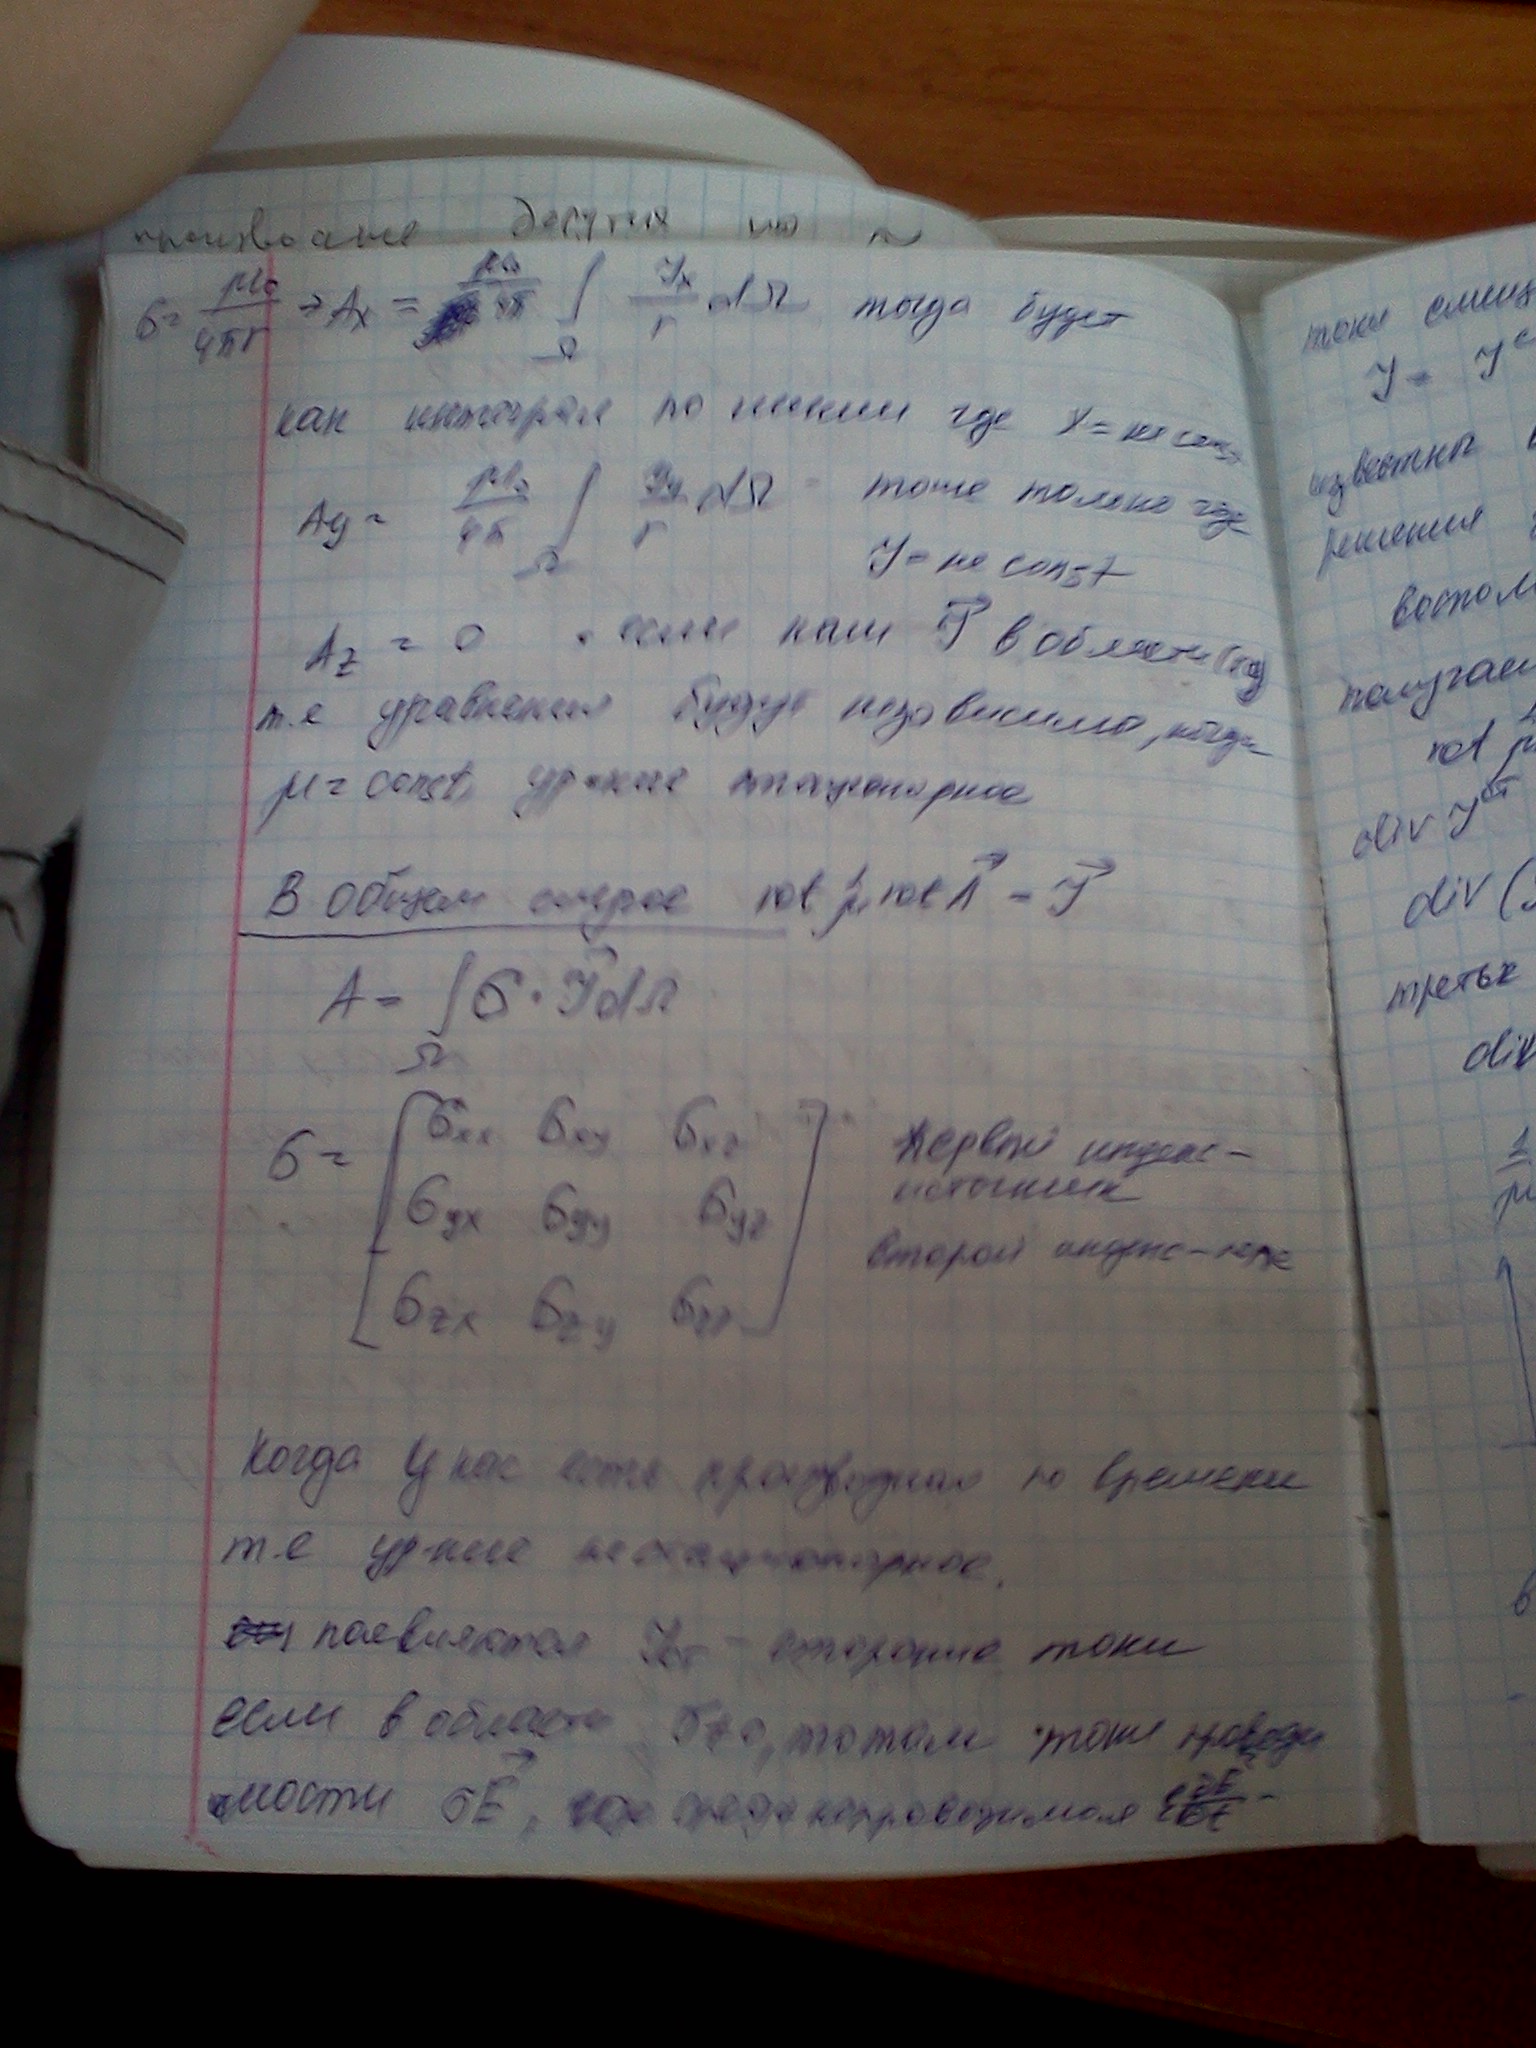 G = μ₀/4πr → Aₓ = μ₀/4π ∫_Ω Jₓ/r dΩ тогда будет
как интеграл по линии где x = не const
Ay = μ₀/4π ∫_Ω Jy/r dΩ тоже только где
y = не const
Az = 0 если наш J⃗ в области (xy)
т.е уравнения будут независимо, когда
μ = const, ур-ние стационарное
В общем случае rot 1/μ rot A⃗ = J⃗
A = ∫_Ω G · J⃗ dΩ
G = [Gxx Gxy Gxz
Gyx Gyy Gyz
Gzx Gzy Gzz]
первый индекс -
источник
второй индекс -
Когда у нас есть производная по времени
т.е ур-ние нестационарное.
появляются Jст - сторонние токи
если в области σ≠0, то там токи проводи
мости σE⃗, где среда непроводимая ε ∂E⃗/∂t -
токи смещ
J = J
известны
решения
получаем
rot
div J ст
div (J
третьх
div
1/μ